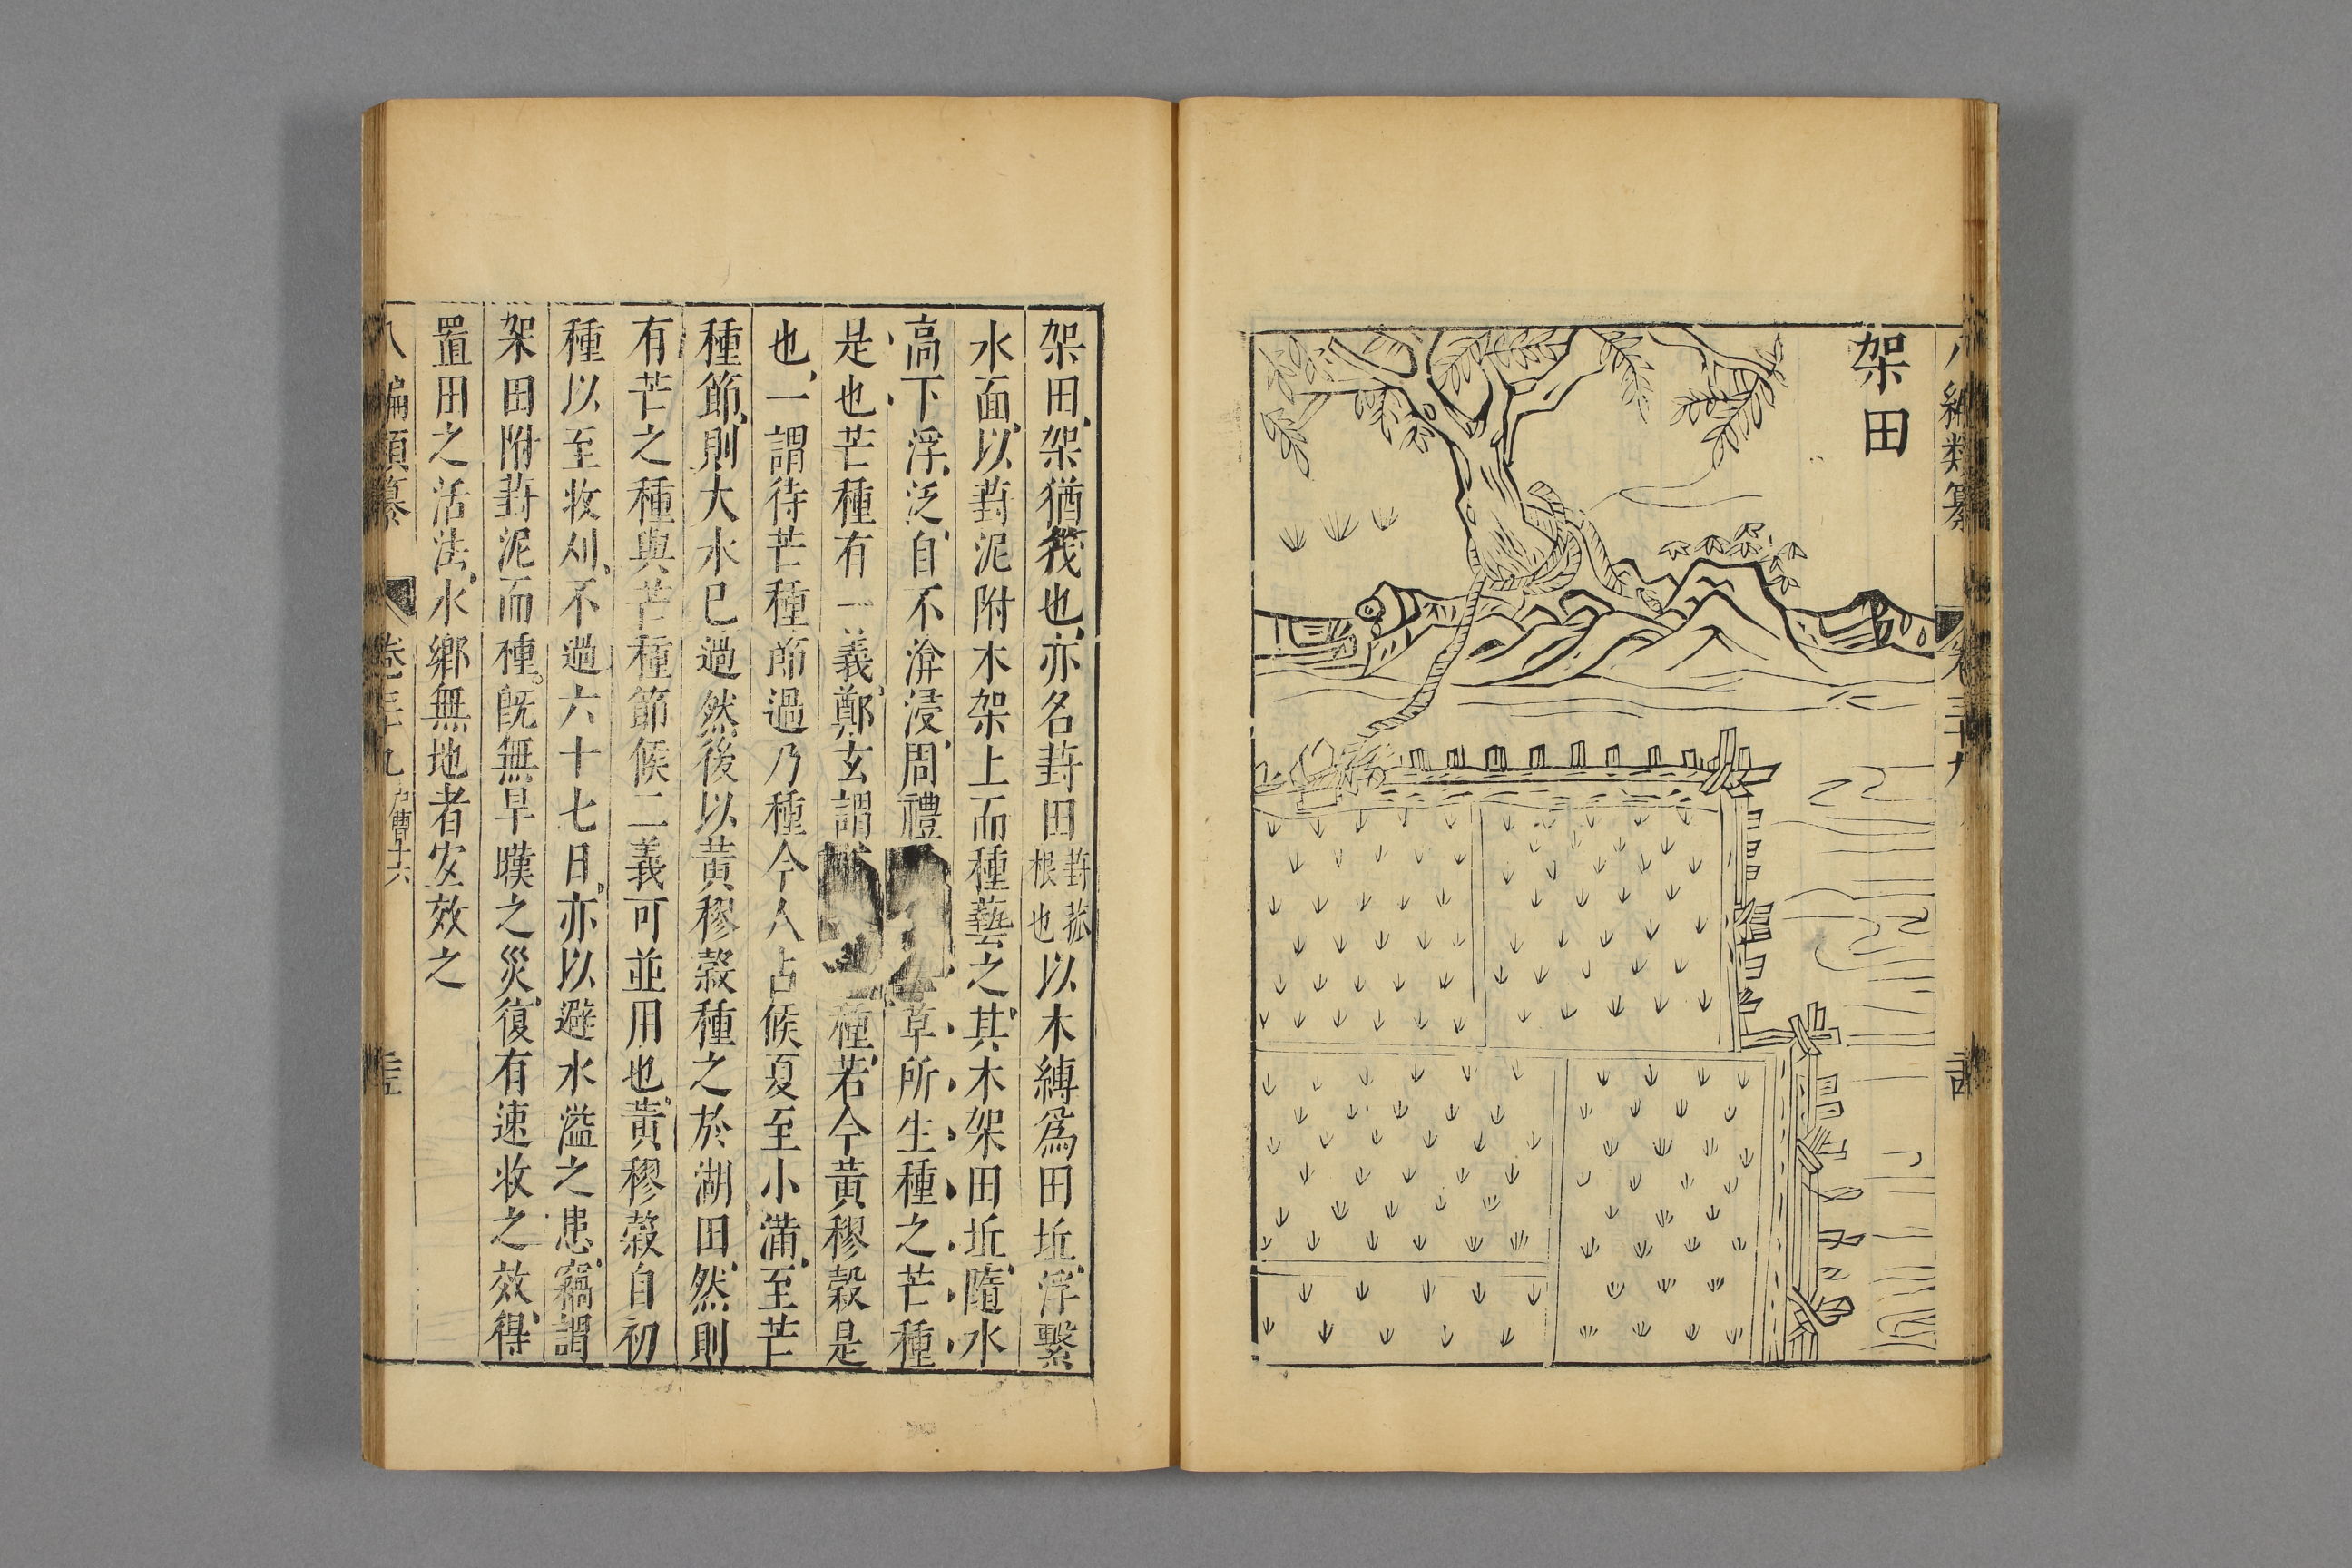 架田
類纂
架田架猶筏也亦名葑田葑菰根也以木縛爲田坵浮繫
水面以葑泥附木架上而種藝之其木架田坵隨水
高下浮泛自不渰浸周禮
草所生種之芒種
是也芒種有一義鄭玄謂
種若今黃穋穀是
也一謂待芒種節過乃種今人占候夏至小滿至芒
種節則大水已過然後以黃穋穀種之於湖田然則
有芒之種與芒種節候二義可並用也黃穋穀自初
種以至收刈不過六十七日亦以避水溢之患竊謂
架田附葑泥而種旣無旱暵之災復有速收之效得
置田之活法水鄉無地者宐效之
八編類纂
卷三十九
戶曹十六